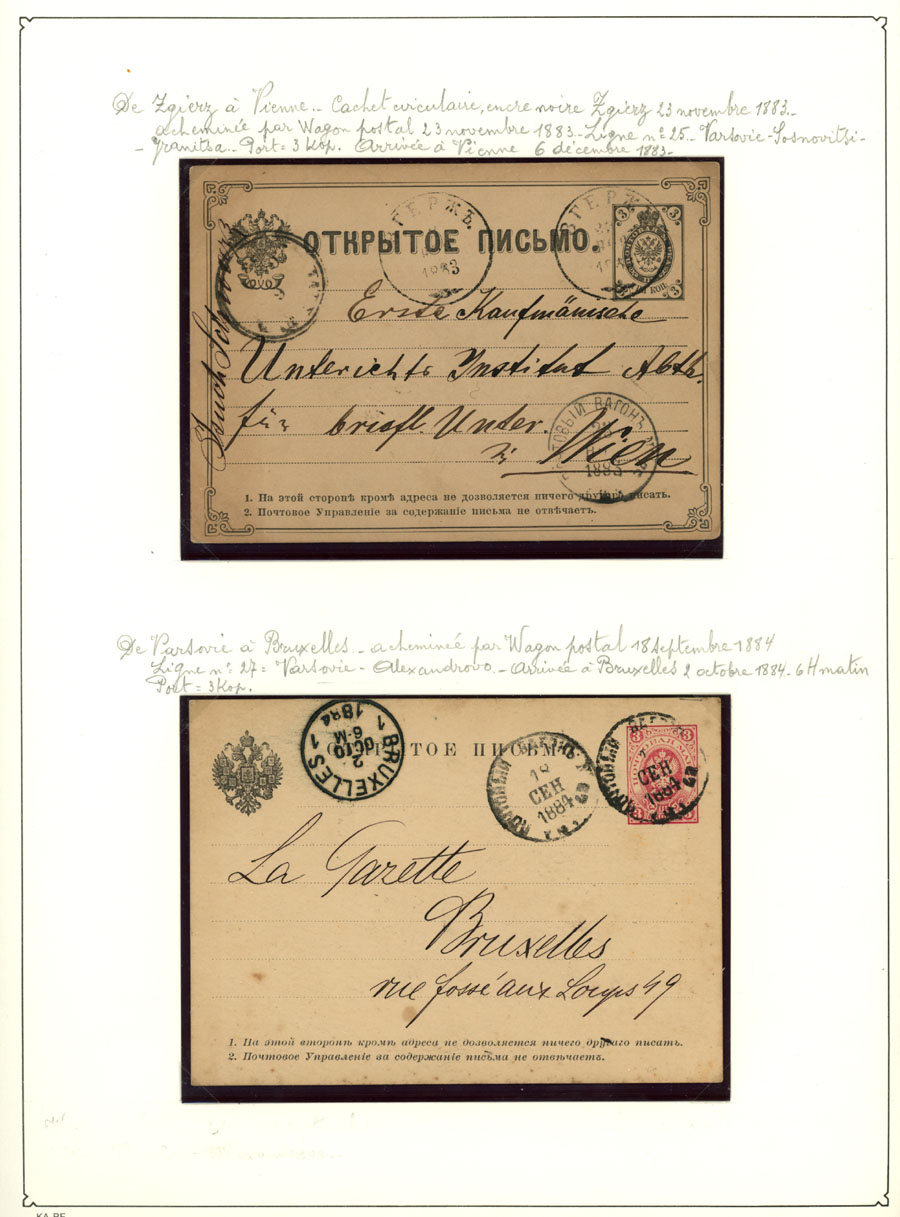 De Zgierz à Vienne_ Cachet circulaire, encre noire Zgierz 23 novembre 1883_
acheminée par Wagon postal 23 novembre 1883_ Ligne n° 25_ Varsovie-Sosnovitzi-
-Granitza_ Port = 3 Kop. Arrivée à Vienne 6 décembre 1883_
ЗГЕРЖЪ.
ЗГЕРЖЪ.
3
3
ОТКРЫТОЕ ПИСЬМО.
Erste Kaufmänische
Unterichts Institut Abth.
für briefl. Unter.
Wien
ПОЧТОВЫЙ ВАГОНЪ
1883
1. На этой сторонѣ кромѣ адреса не дозволяется ничего другаго писать.
2. Почтовое Управленіе за содержаніе письма не отвѣчаетъ.
De Varsovie à Bruxelles_ acheminée par Wagon postal 18 septembre 1884
Ligne n° 27 = Varsovie - Alexandrovo_ Arrivée à Bruxelles 2 octobre 1884_ 6 H matin
Port = 3 Kop.
BRUXELLES 1
2
OCTO
6-M
1884
1
ОТКРЫТОЕ ПИСЬМО
ПОЧТОВЫЙ ВАГОНЪ
18
СЕН
1884
ПОЧТОВЫЙ
СЕН
1884
3
3
3
La Gazette
Bruxelles
rue fossé aux Loups 49
1. На этой второнѣ кромѣ адреса не дозволяется ничего другаго писать.
2. Почтовое Управленіе за содержаніе письма не отвѣчаетъ.
KA-BE